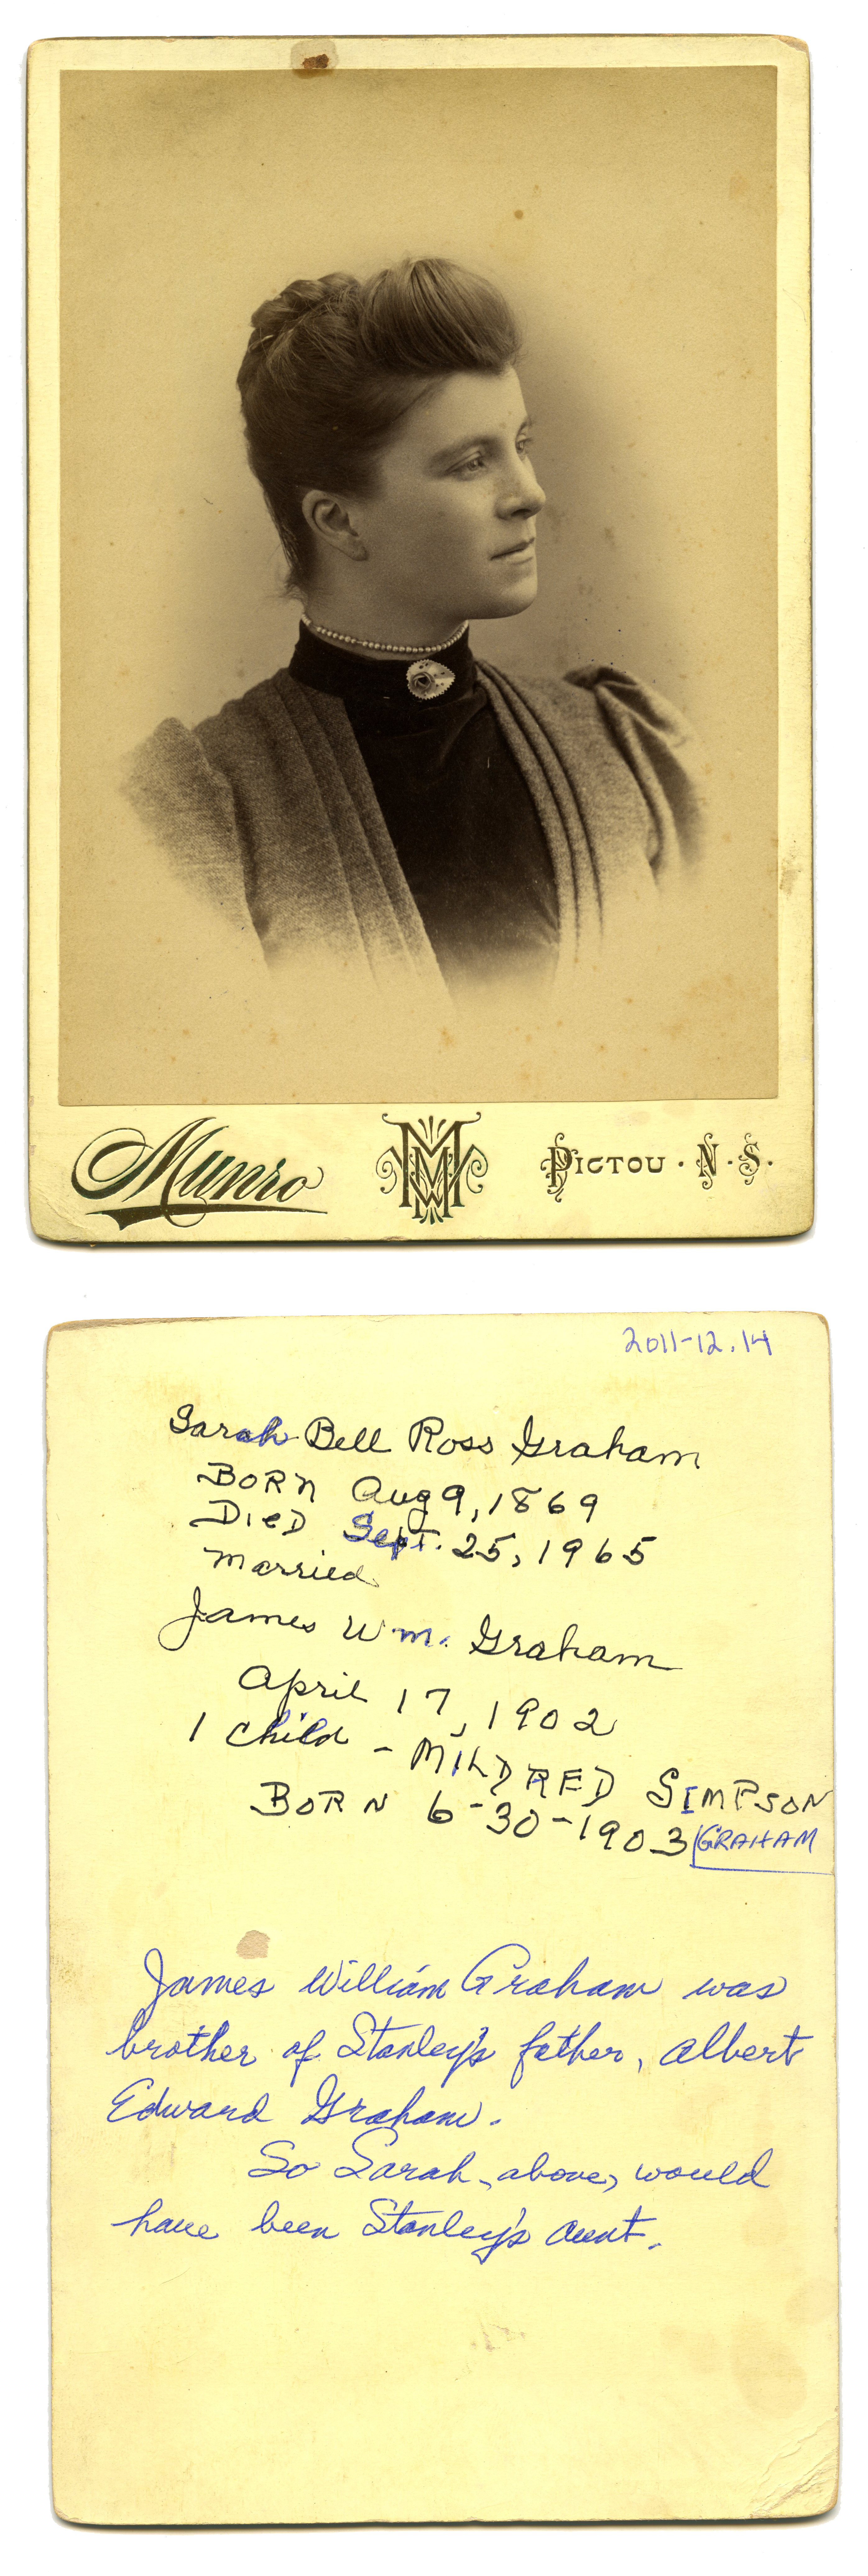 Munro
MWM
PICTOU · N · S ·
2011-12.14
Sarah Bell Ross Graham
BORN Aug 9, 1869
DIED Sept. 25, 1965
married
James Wm. Graham
April 17, 1902
1 child - MILDRED SIMPSON
BORN 6-30-1903 GRAHAM
James William Graham was
brother of Stanley's father, Albert
Edward Graham.
So Sarah, above, would
have been Stanley's aunt.